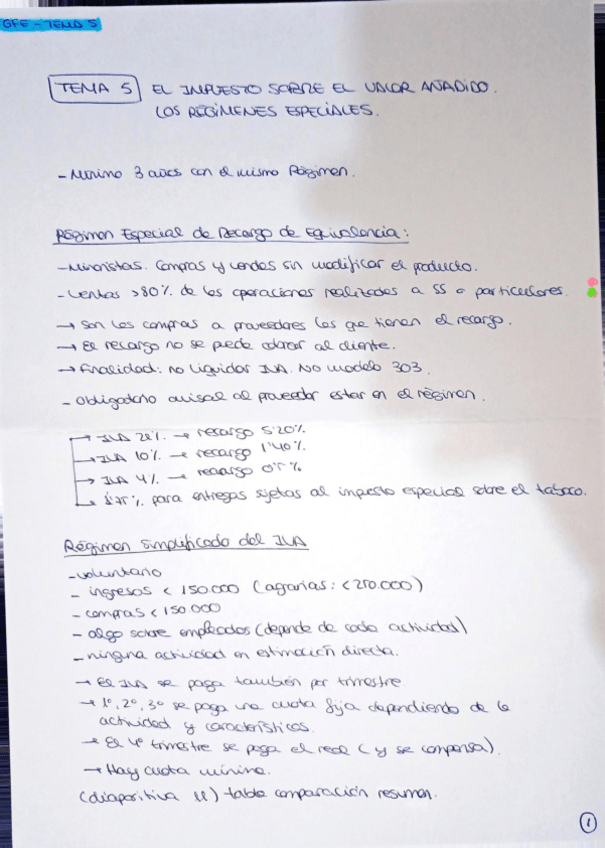 GFE - TEMA 5
TEMA 5 EL IMPUESTO SOBRE EL VALOR AÑADIDO.
LOS REGÍMENES ESPECIALES.
- Mínimo 3 años con el mismo Régimen.
Régimen Especial de Recargo de Equivalencia:
- Minoristas. Compras y vendes sin modificar el producto.
- Ventas >80% de las operaciones realizadas a SS o particulares.
→ Son las compras a proveedores las que tienen el recargo.
→ El recargo no se puede cobrar al cliente.
→ Finalidad: no liquidar IVA. No modelo 303.
- Obligatorio avisar al proveedor estar en el régimen.
→ IVA 21% → recargo 5'20%
→ IVA 10% → recargo 1'40%
→ IVA 4% → recargo 0'5%
para entregas sujetas al impuesto especial sobre el tabaco.
Régimen Simplificado del IVA
- voluntario
- ingresos < 150.000 (agrarias: <250.000)
- compras < 150.000
- algo sobre empleados (depende de cada actividad)
- ninguna actividad en estimación directa.
→ El IVA se paga también por trimestre.
→ 1º, 2º, 3º se paga una cuota fija dependiendo de la
actividad y características.
→ El 4º trimestre se paga el real (y se compensa).
→ Hay cuota mínima.
(diapositiva 11) tabla comparación resumen.
1